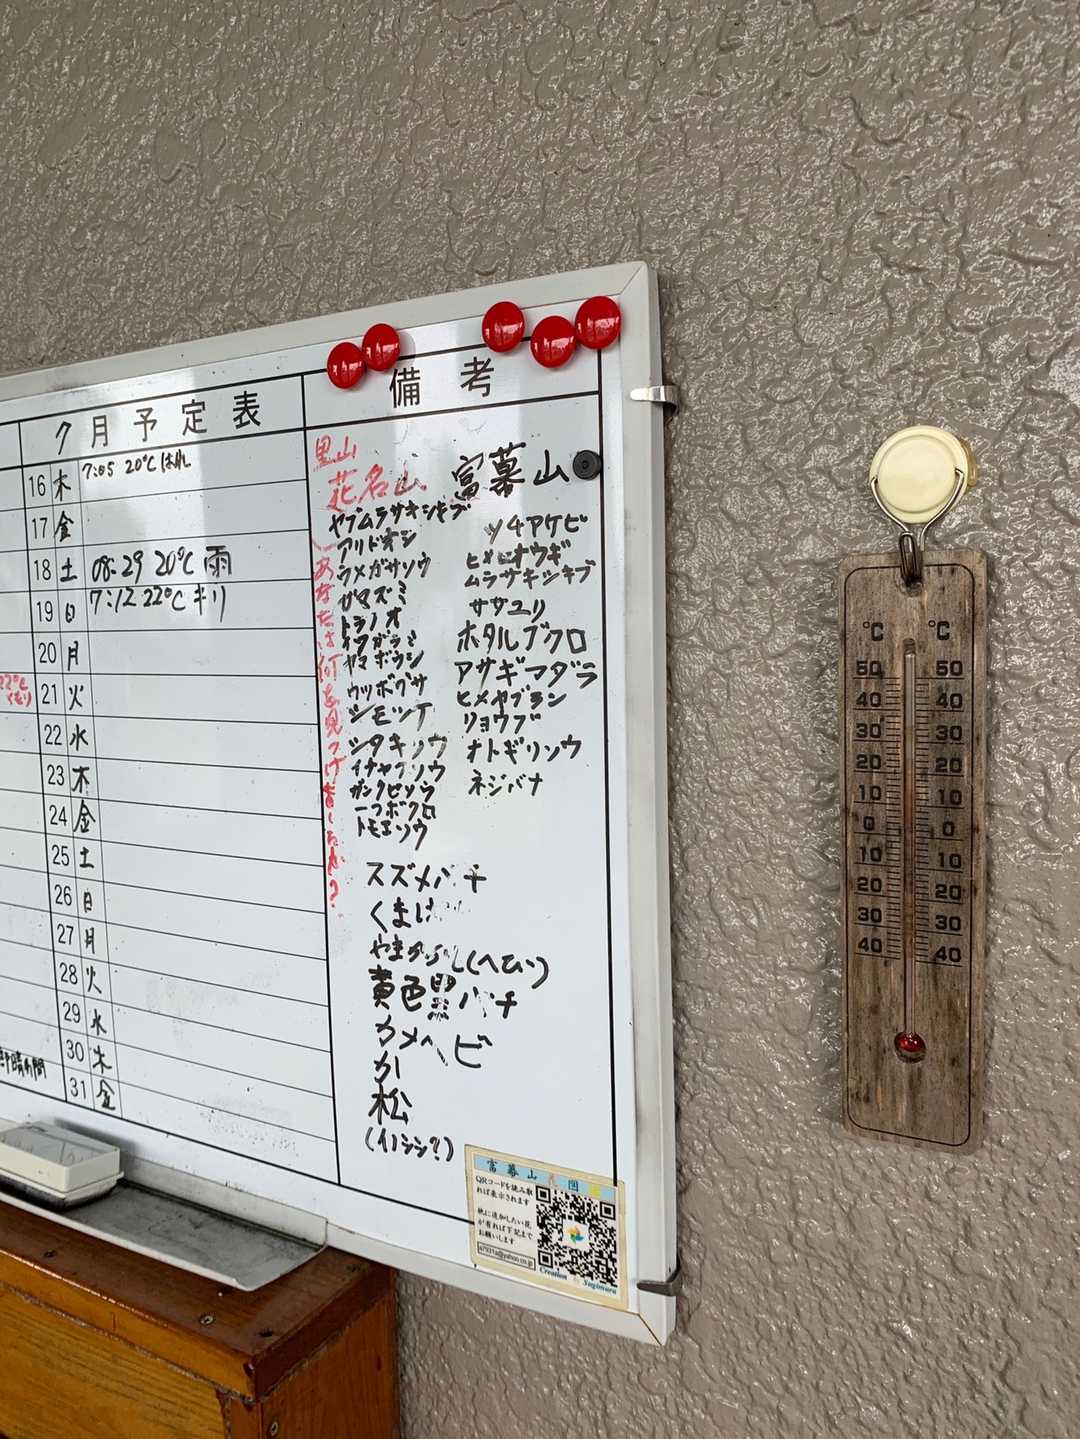 7月予定表
備考
16 木 7:05 20℃ はれ
17 金
18 土 08:29 20℃ 雨
19 日 7:12 22℃ キリ
20 月
22℃
くもり
21 火
22 水
23 木
24 金
25 土
26 日
27 月
28 火
29 水
30 木
31 金
里山
花名山
富幕山
あなたは何を見つけましたか?
ヤブムラサキシキブ
アリドオシ
ウメガサソウ
ガマズミ
トラノオ
ヤマボウシ
ウツボグサ
シモツケ
イチヤクソウ
ガンクビソウ
一つボクロ
トモエソウ
ツチアケビ
ムラサキシキブ
ササユリ
ホタルブクロ
アサギマダラ
ヒメヤブラン
リョウブ
オトギリソウ
ネジバナ
スズメバチ
くまば
(へび)
黄色黒バチ
カメヘビ
か
松
(イノシシ?)
富幕山 図
QRコードを読み取
れば表示されます
他に追加したい花
が有れば下記まで
お願いします
Creation Sugimura
℃ ℃
50 50
40 40
30 30
20 20
10 10
0 0
10 10
20 20
30 30
40 40